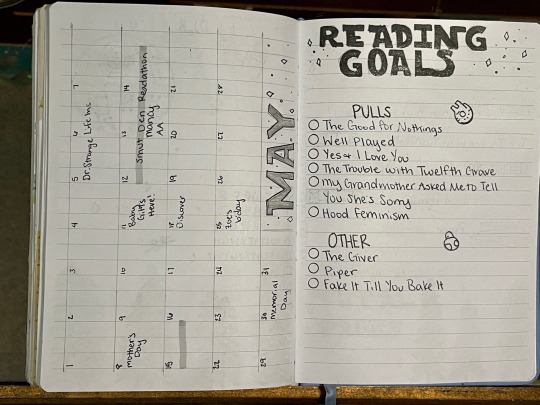 MAY
1
2
3
4
5
6
7
Dr. Strange Life Ins
8
Mother's
Day
9
10
11
Baby
Gifts
Here!
12
13
14
Smut Den Readathon
AA
15
16
17
18
Discover
19
20
21
22
23
24
25
Zoe's
b'day
26
27
28
29
30
Memorial
Day
31
READING
GOALS
PULLS
The Good for Nothings
Well Played
Yes & I Love You
The Trouble with Twelfth Grave
My Grandmother Asked Me to Tell
You She's Sorry
Hood Feminism
OTHER
The Giver
Piper
Fake It Till You Bake It